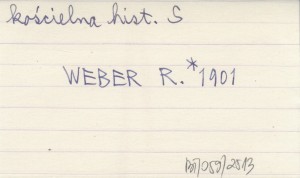 kościelna hist. S
WEBER R. *1901
BJ/059/2013